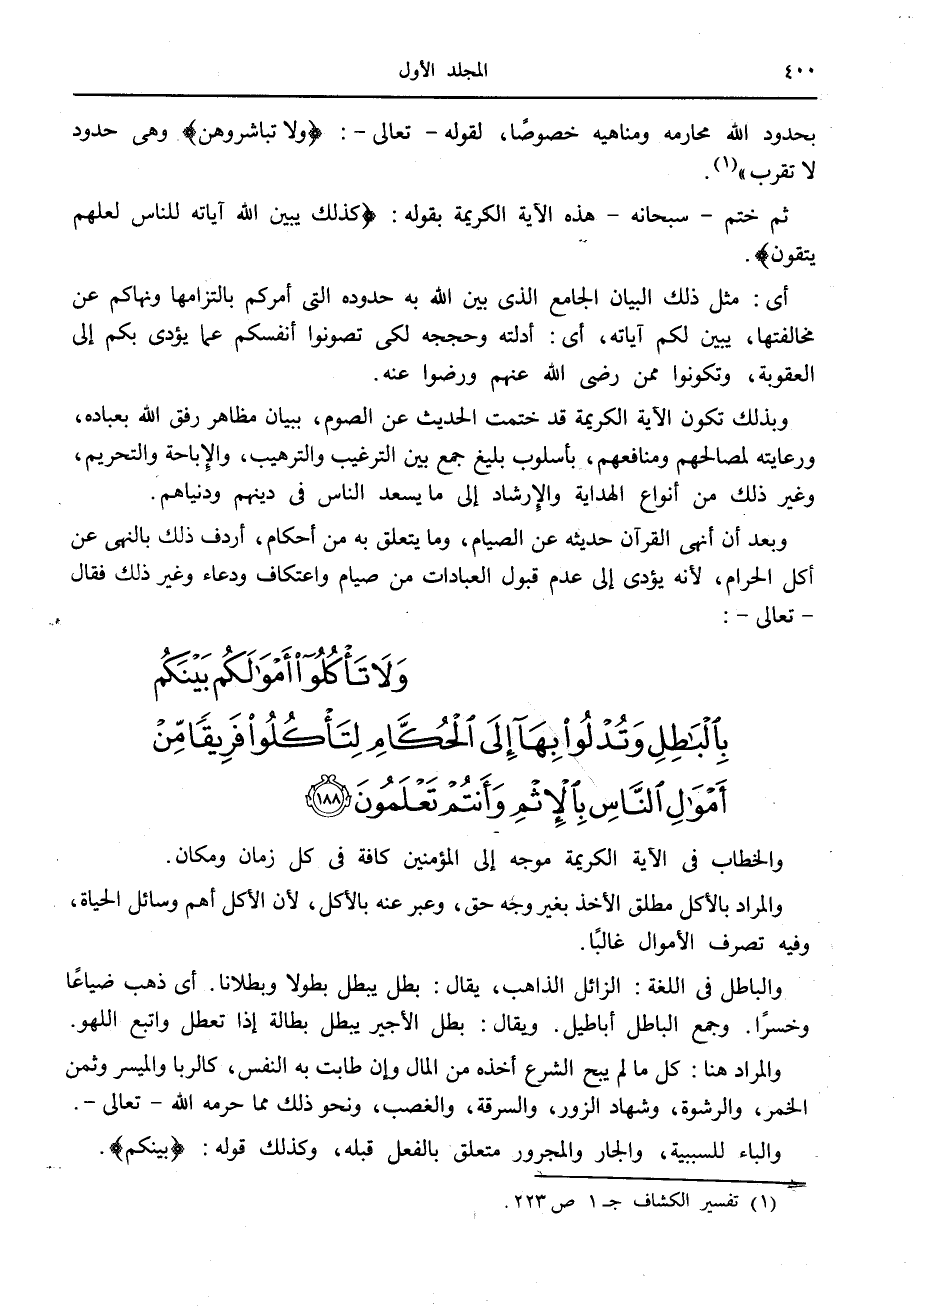 ٤٠٠
المجلد الأول
بحدود الله محارمه ومناهيه خصوصًا، لقوله - تعالى - : ﴿ولا تباشروهن﴾ وهى حدود
لا تقرب»(١).
ثم ختم - سبحانه - هذه الآية الكريمة بقوله : ﴿كذلك يبين الله آياته للناس لعلهم
يتقون﴾.
أى : مثل ذلك البيان الجامع الذى بين الله به حدوده التى أمركم بالتزامها ونهاكم عن
مخالفتها، يبين لكم آياته، أى : أدلته وحججه لكى تصونوا أنفسكم عما يؤدى بكم إلى
العقوبة، وتكونوا ممن رضى الله عنهم ورضوا عنه.
وبذلك تكون الآية الكريمة قد ختمت الحديث عن الصوم، ببيان مظاهر رفق الله بعباده،
ورعايته لمصالحهم ومنافعهم، بأسلوب بليغ جمع بين الترغيب والترهيب، والإباحة والتحريم،
وغير ذلك من أنواع الهداية والإرشاد إلى ما يسعد الناس فى دينهم ودنياهم.
وبعد أن أنهى القرآن حديثه عن الصيام، وما يتعلق به من أحكام، أردف ذلك بالنهى عن
أكل الحرام، لأنه يؤدى إلى عدم قبول العبادات من صيام واعتكاف ودعاء وغير ذلك فقال
- تعالى - :
وَلَا تَأْكُلُوٓا۟ أَمْوَٰلَكُم بَيْنَكُم
بِٱلْبَٰطِلِ وَتُدْلُوا۟ بِهَآ إِلَى ٱلْحُكَّامِ لِتَأْكُلُوا۟ فَرِيقًا مِّنْ
أَمْوَٰلِ ٱلنَّاسِ بِٱلْإِثْمِ وَأَنتُمْ تَعْلَمُونَ ١٨٨
والخطاب فى الآية الكريمة موجه إلى المؤمنين كافة فى كل زمان ومكان.
والمراد بالأكل مطلق الأخذ بغير وجه حق، وعبر عنه بالأكل، لأن الأكل أهم وسائل الحياة،
وفيه تصرف الأموال غالبًا.
والباطل فى اللغة : الزائل الذاهب، يقال : بطل يبطل بطولا وبطلانا. أى ذهب ضياعًا
وخسرًا. وجمع الباطل أباطيل. ويقال : بطل الأجير يبطل بطالة إذا تعطل واتبع اللهو.
والمراد هنا : كل ما لم يبح الشرع أخذه من المال وإن طابت به النفس، كالربا والميسر وثمن
الخمر، والرشوة، وشهاد الزور، والسرقة، والغصب، ونحو ذلك مما حرمه الله - تعالى -.
والباء للسببية، والجار والمجرور متعلق بالفعل قبله، وكذلك قوله : ﴿بينكم﴾.
(١) تفسير الكشاف جـ ١ ص ٢٢٣.